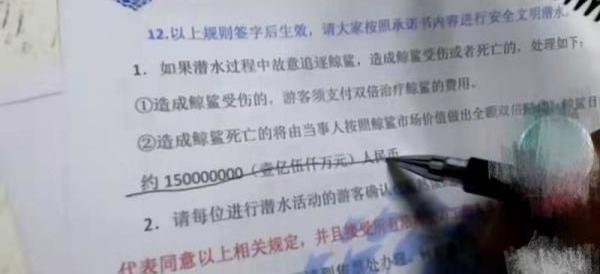 12.以上规则签字后生效，请大家按照承诺书内容进行安全文明潜水。
1. 如果潜水过程中故意追逐鲸鲨，造成鲸鲨受伤或者死亡的，处理如下：
①造成鲸鲨受伤的，游客须支付双倍治疗鲸鲨的费用。
②造成鲸鲨死亡的将由当事人按照鲸鲨市场价值做出全额双倍 鲸鲨目
约 150000000（壹亿伍仟万元）人民币
2. 请每位进行潜水活动的游客确认
代表同意以上相关规定，并且接受所有